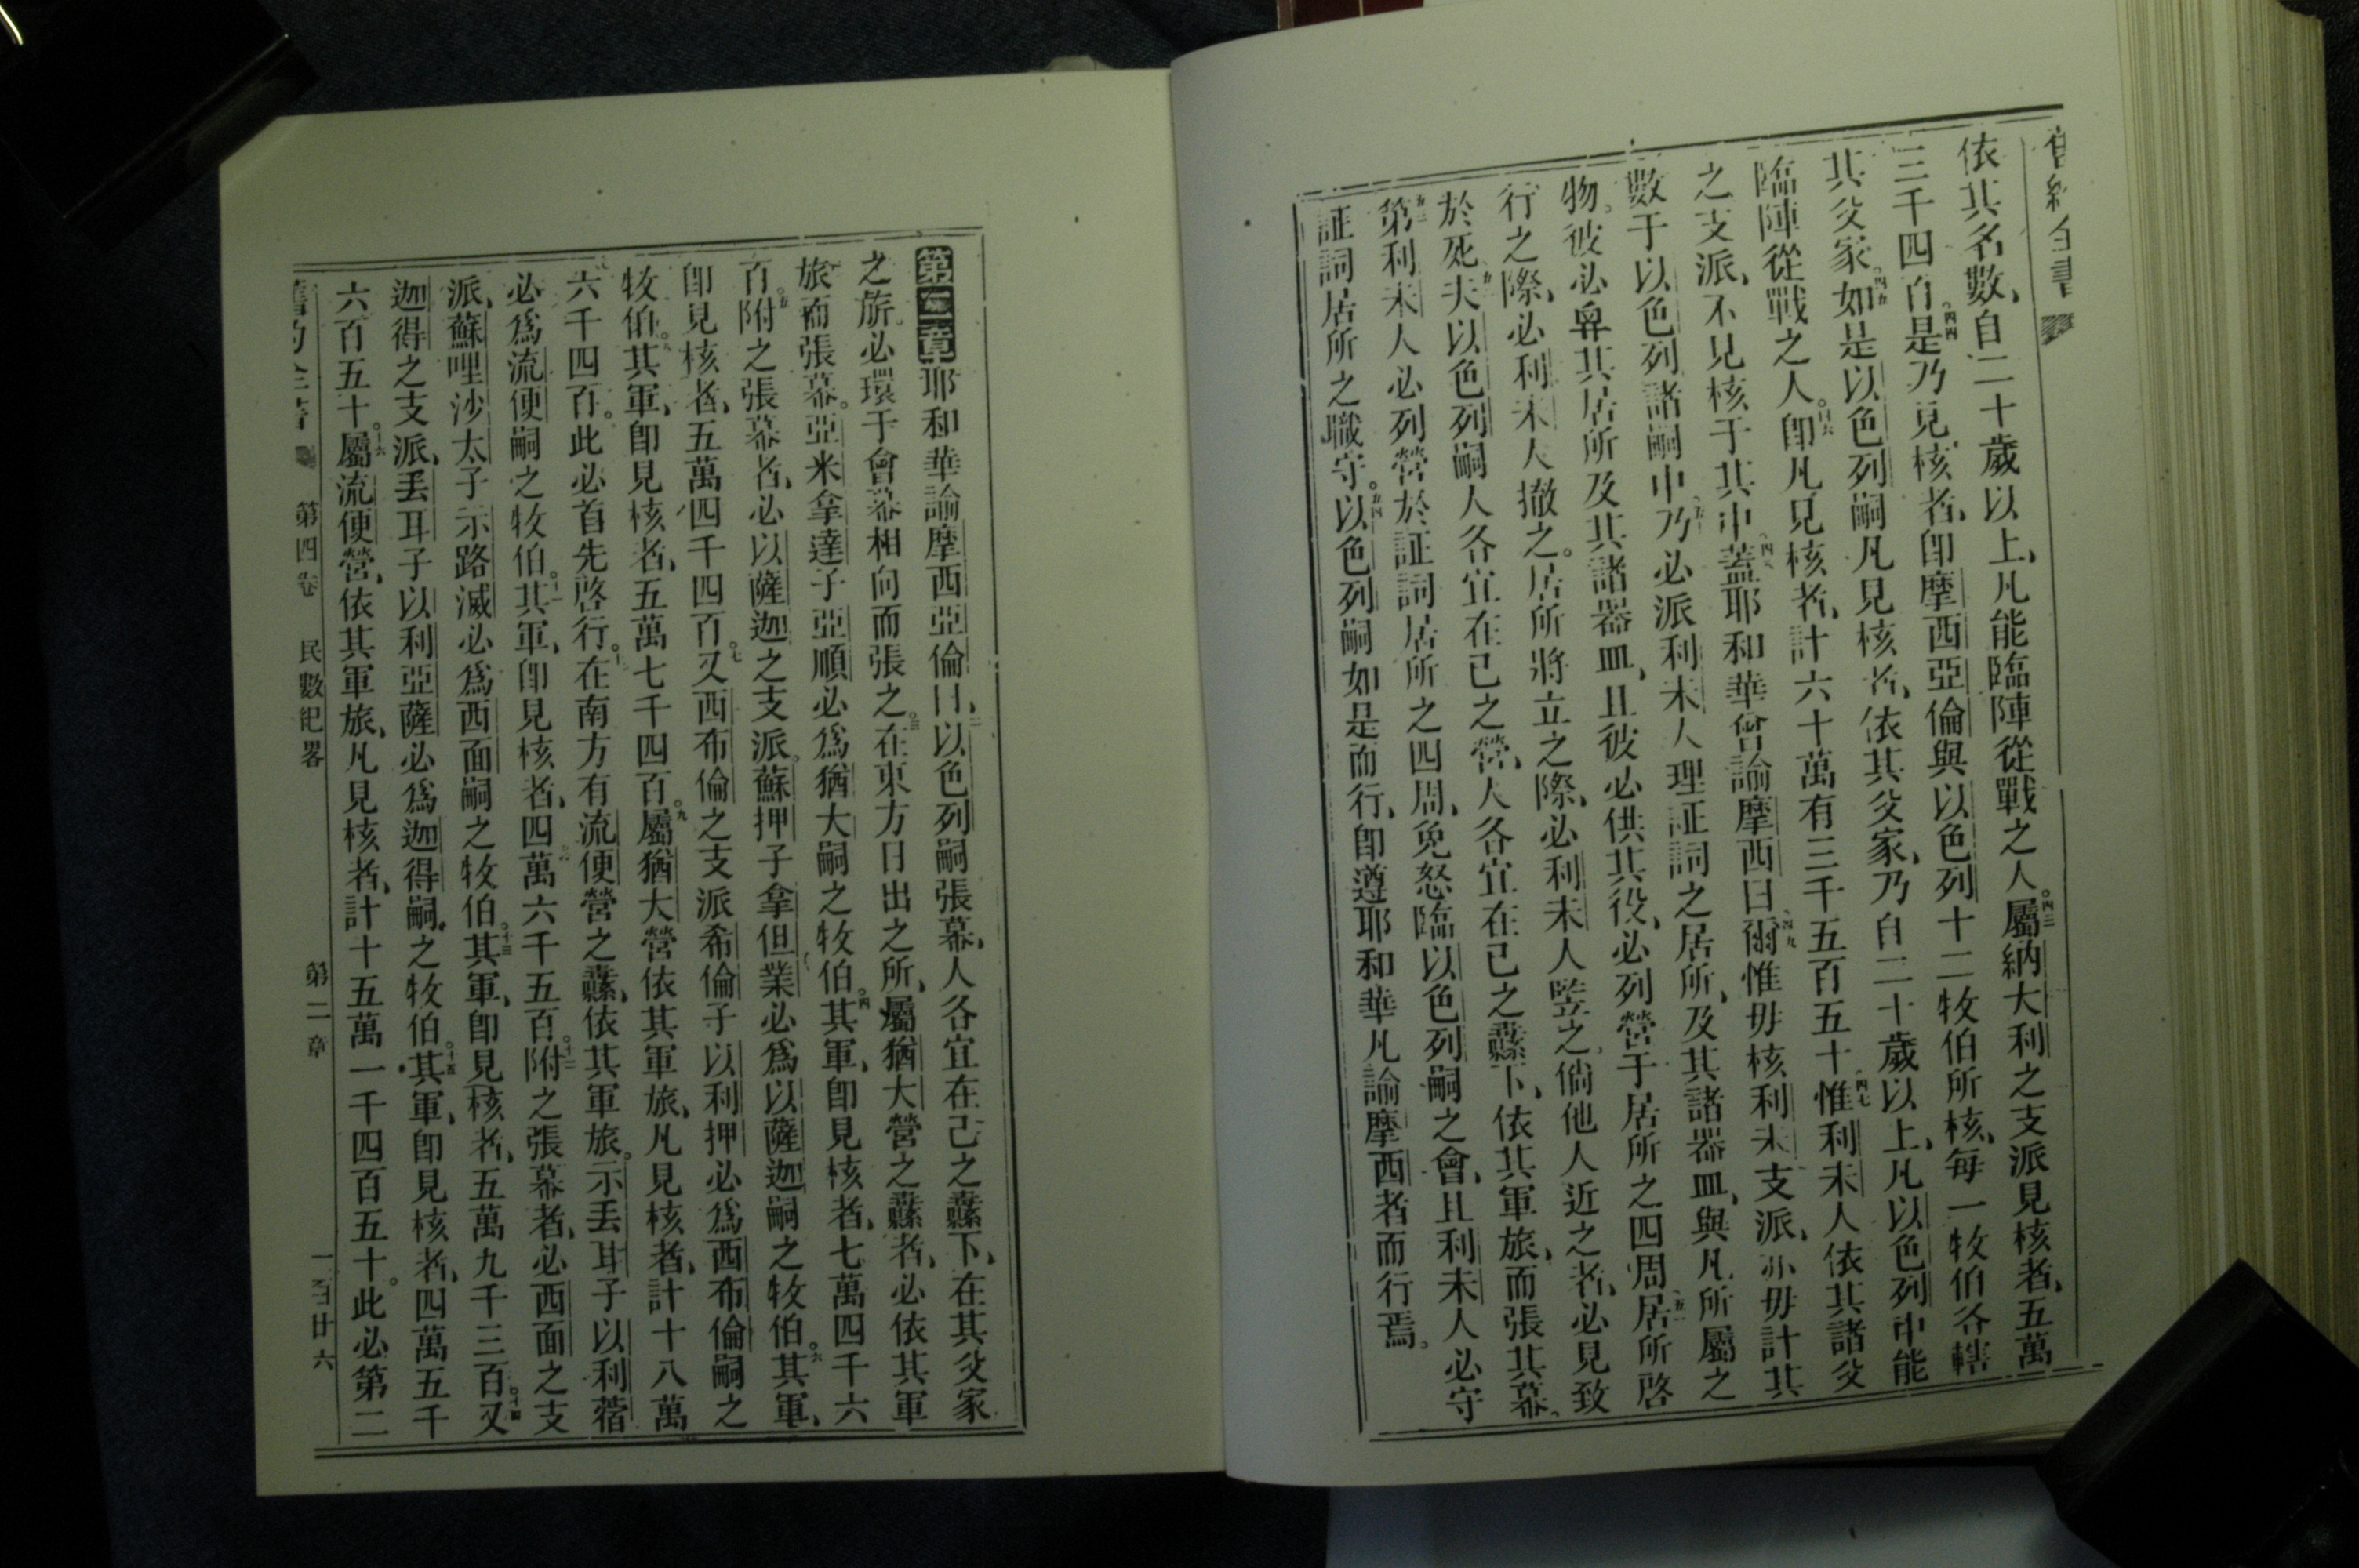 舊約全書
依其名數、自二十歲以上、凡能臨陣從戰之人。四三屬納大利之支派見核者、五萬
三千四百。四四是乃見核者、卽摩西亞倫與以色列十二牧伯所核、每一牧伯各轄
其父家。四五如是以色列嗣凡見核者、依其父家、乃自二十歲以上、凡以色列中能
臨陣從戰之人。四六卽凡見核者、計六十萬有三千五百五十四七惟利未人依其諸父
之支派、不見核于其中、四八蓋耶和華曾諭摩西曰四九爾惟毋核利未支派、亦毋計其
數于以色列諸嗣中、五十乃必派利未人理証詞之居所、及其諸器皿、與凡所屬之
物。彼必舁其居所及其諸器皿、且彼必供其役、必列營于居所之四周五一居所啓
行之際、必利未人撤之。居所將立之際、必利未人竪之、倘他人近之者、必見致
於死五二夫以色列嗣人各宜在己之營、人各宜在己之纛下、依其軍旅、而張其幕。
五三第利未人必列營於証詞居所之四周、免怒臨以色列嗣之會、且利未人必守
証詞居所之職守。五四以色列嗣如是而行、卽遵耶和華凡諭摩西者而行焉。
第二章耶和華諭摩西亞倫曰、二以色列嗣張幕、人各宜在己之纛下、在其父家
之旂。必環于會幕相向而張之。三在東方日出之所、屬猶大營之纛者、必依其軍
旅而張幕。亞米拿達子亞順必爲猶大嗣之牧伯。四其軍、卽見核者、七萬四千六
百。五附之張幕者、必以薩迦之支派。蘇押子拿但業必爲以薩迦嗣之牧伯。六其軍、
卽見核者、五萬四千四百。七又西布倫之支派希倫子以利押必爲西布倫嗣之
牧伯。八其軍、卽見核者、五萬七千四百。九屬猶大營依其軍旅、凡見核者、計十八萬
六千四百。此必首先啓行。十在南方有流便營之纛、依其軍旅。示丟耳子以利蓿
必爲流便嗣之牧伯。十一其軍、卽見核者、四萬六千五百。十二附之張幕者、必西面之支
派、蘇哩沙太子示路滅必爲西面嗣之牧伯。十三其軍、卽見核者、五萬九千三百。十四又
迦得之支派、丟耳子以利亞薩必爲迦得嗣之牧伯。十五其軍、卽見核者、四萬五千
六百五十。十六屬流便營、依其軍旅、凡見核者、計十五萬一千四百五十。此必第二
舊約全書 第四卷 民數紀畧 第二章 一百廿六